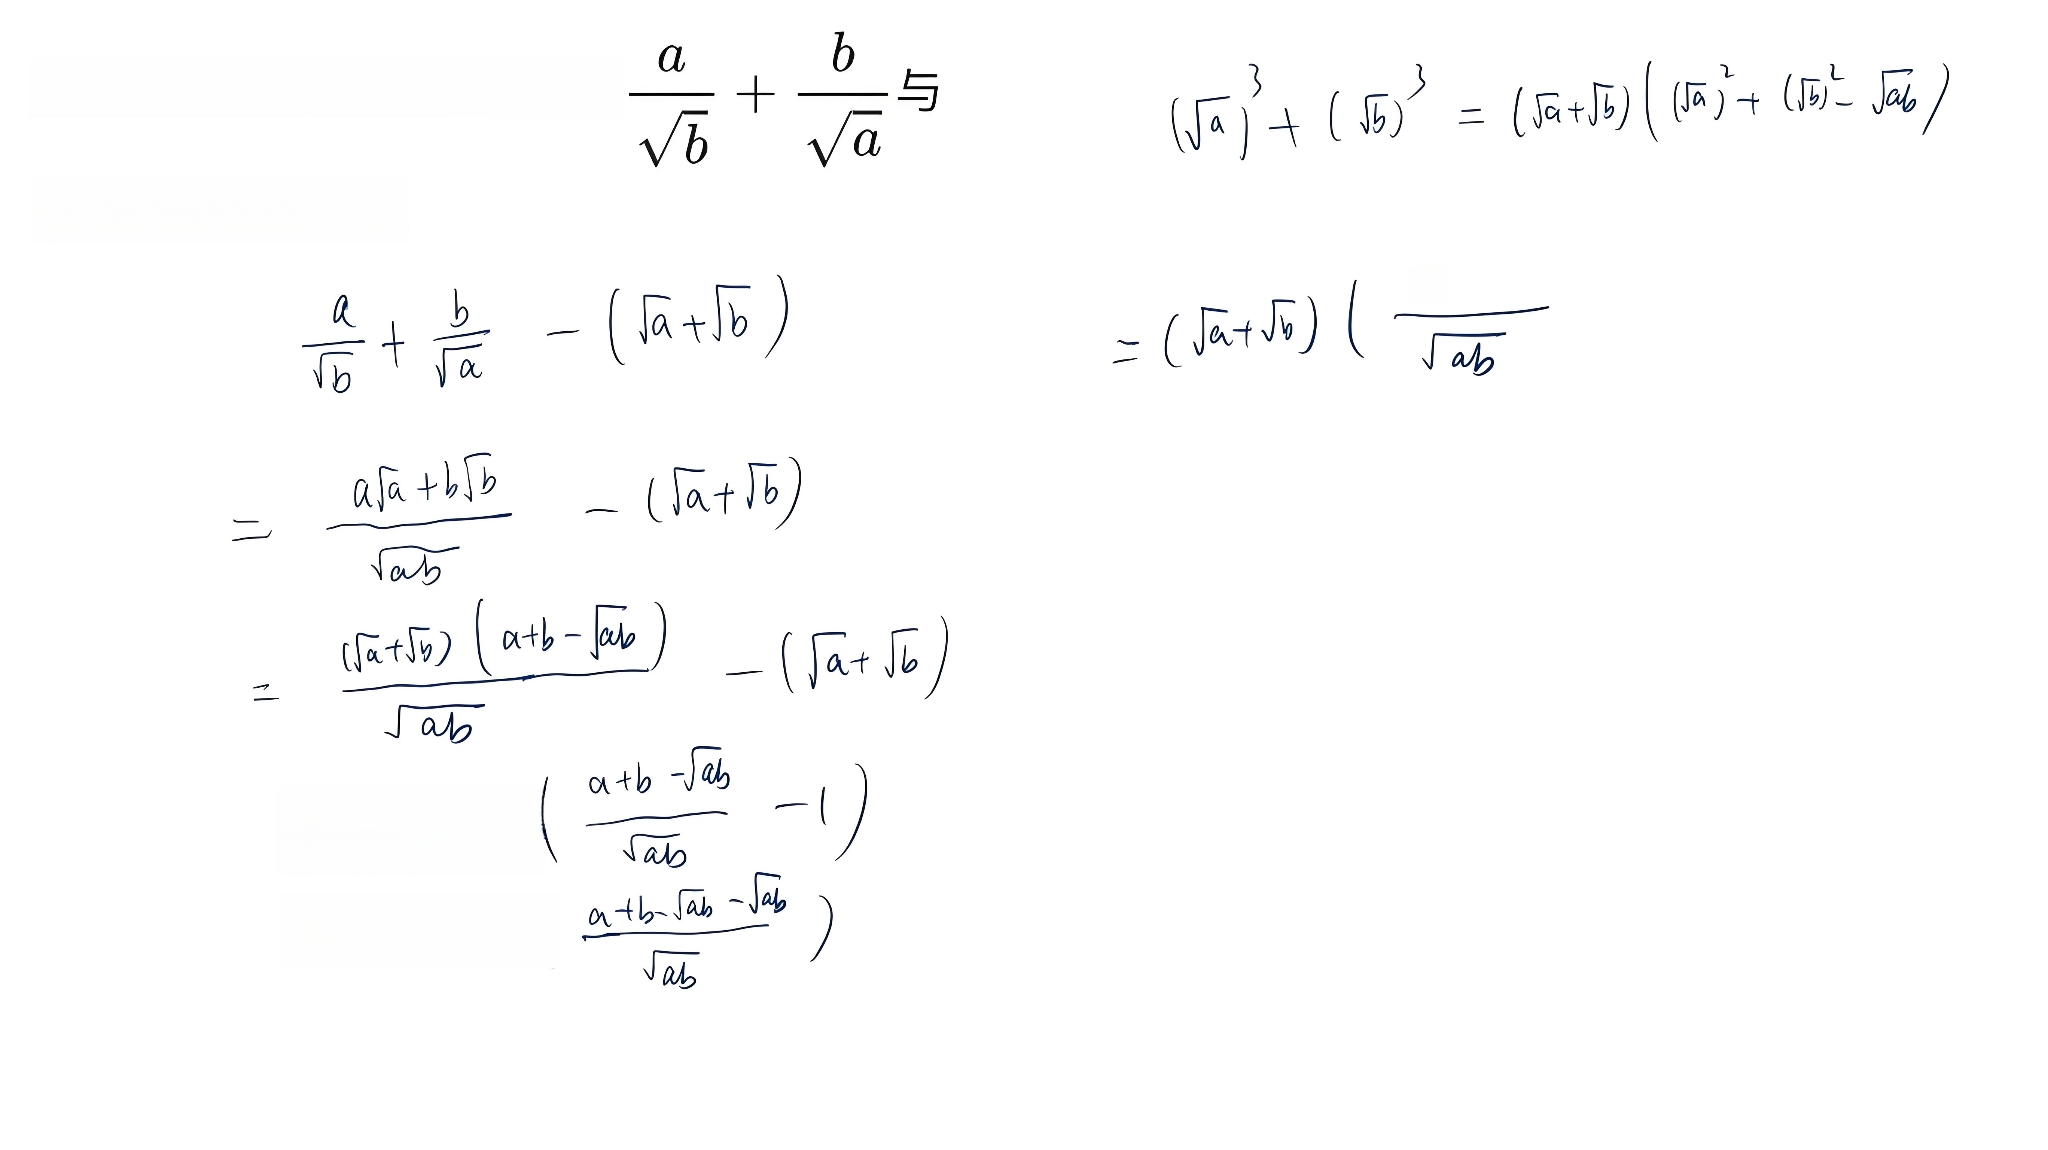 a/√b + b/√a 与
(√a)³ + (√b)³ = (√a+√b)((√a)² + (√b)² - √ab)
a/√b + b/√a - (√a+√b)
= (√a+√b)( /√ab
= (a√a+b√b)/√ab - (√a+√b)
= (√a+√b)(a+b-√ab)/√ab - (√a+√b)
((a+b-√ab)/√ab - 1)
(a+b-√ab-√ab)/√ab )